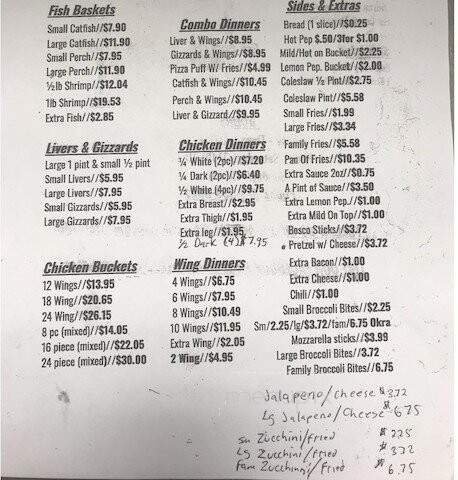 Fish Baskets
Small Catfish//$7.90
Large Catfish//$11.90
Small Perch//$7.95
Large Perch//$11.90
½lb Shrimp//$12.04
1lb Shrimp//$19.53
Extra Fish//$2.85
Livers & Gizzards
Large 1 pint & small ½ pint
Small Livers//$5.95
Large Livers//$7.95
Small Gizzards//$5.95
Large Gizzards//$7.95
Chicken Buckets
12 Wings//$13.95
18 Wing//$20.65
24 Wing//$26.15
8 pc (mixed)//$14.05
16 piece (mixed)//$22.05
24 piece (mixed)//$30.00
Combo Dinners
Liver & Wings//$8.95
Gizzards & Wings//$8.95
Pizza Puff W/ Fries//$4.99
Catfish & Wings//$10.45
Perch & Wings//$10.45
Liver & Gizzard//$9.95
Chicken Dinners
¼ White (2pc)//$7.20
¼ Dark (2pc)//$6.40
½ White (4pc)//$9.75
Extra Breast//$2.95
Extra Thigh//$1.95
Extra leg//$1.95
½ Dark (4) $7.95
Wing Dinners
4 Wings//$6.75
6 Wings//$7.95
8 Wings//$10.49
10 Wings//$11.95
Extra Wing//$2.05
2 Wing//$4.95
Sides & Extras
Bread (1 slice)//$0.25
Hot Pep $.50/3for $1.00
Mild/Hot on Bucket//$2.25
Lemon Pep. Bucket//$2.00
Coleslaw ½ Pint//$2.75
Coleslaw Pint//$5.58
Small Fries//$1.99
Large Fries//$3.34
Family Fries//$5.58
Pan Of Fries//$10.35
Extra Sauce 2oz//$0.75
A Pint of Sauce//$3.50
Extra Lemon Pep.//$1.00
Extra Mild On Top//$1.00
Bosco Sticks//$3.72
Pretzel w/ Cheese//$3.72
Extra Bacon//$1.00
Extra Cheese//$1.00
Chili//$1.00
Small Broccoli Bites//$2.25
Sm/2.25/lg/$3.72/fam/6.75 Okra
Mozzarella sticks//$3.99
Large Broccoli Bites//3.72
Family Broccoli Bites//6.75
Jalapeno/Cheese $3.72
Lg Jalapeno/Cheese $6.75
sm Zucchini/fried $2.25
Lg Zucchini/fried $3.72
Fam Zucchinni/Fried $6.75